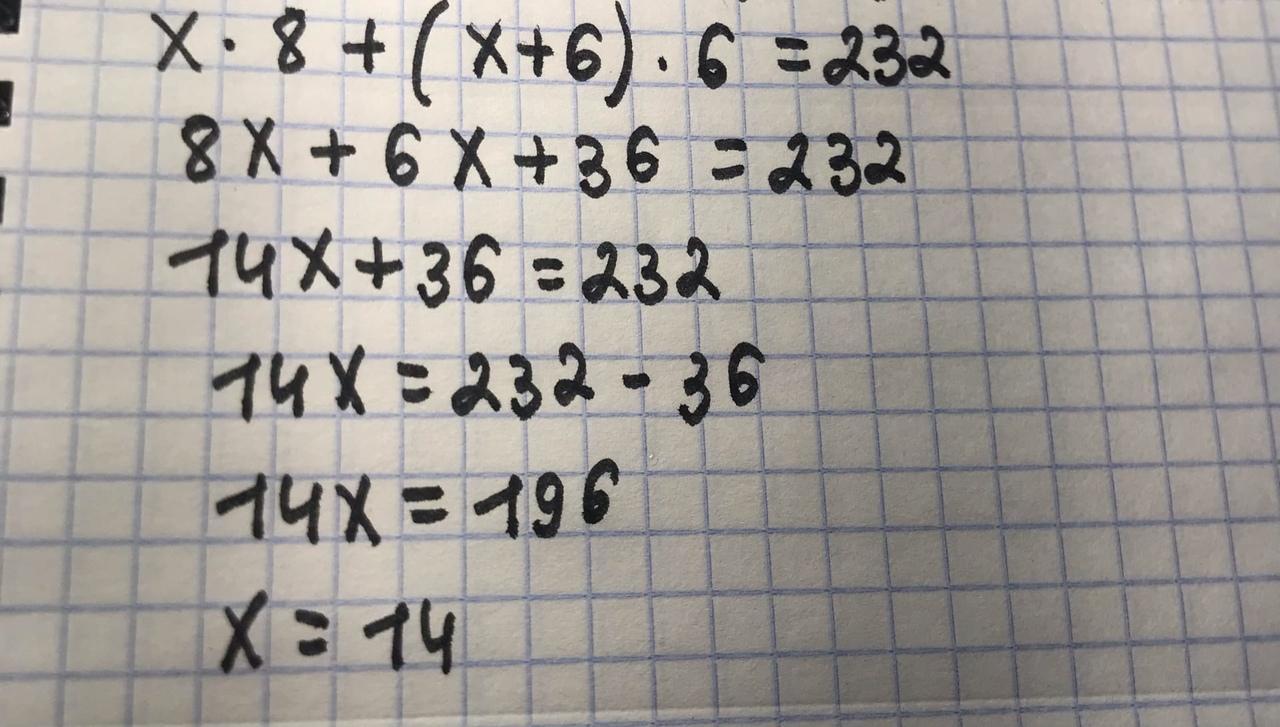 x · 8 + (x+6) · 6 = 232
8x + 6x + 36 = 232
14x + 36 = 232
14x = 232 - 36
14x = 196
x = 14